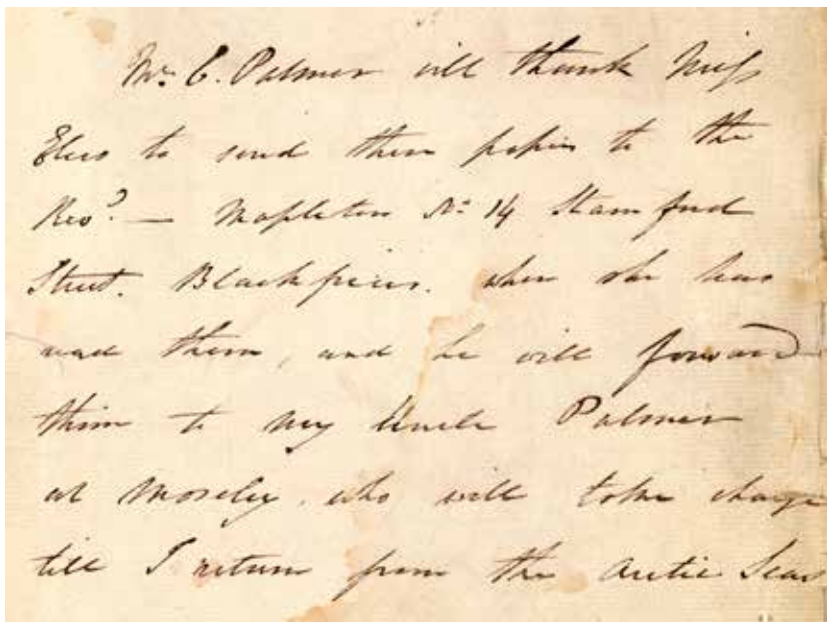 Mr. C. Palmer will thank Miss
to send these papers to the
Revd. — Mapleton No. 14 Stamford
Street. Blackfriers. when she has
read them, and he will forward
them to my Uncle Palmer
at Moseley. who will take charge
till I return from the Arctic Seas